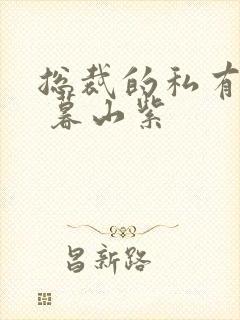 总裁的私有
暮山紫
昌新路